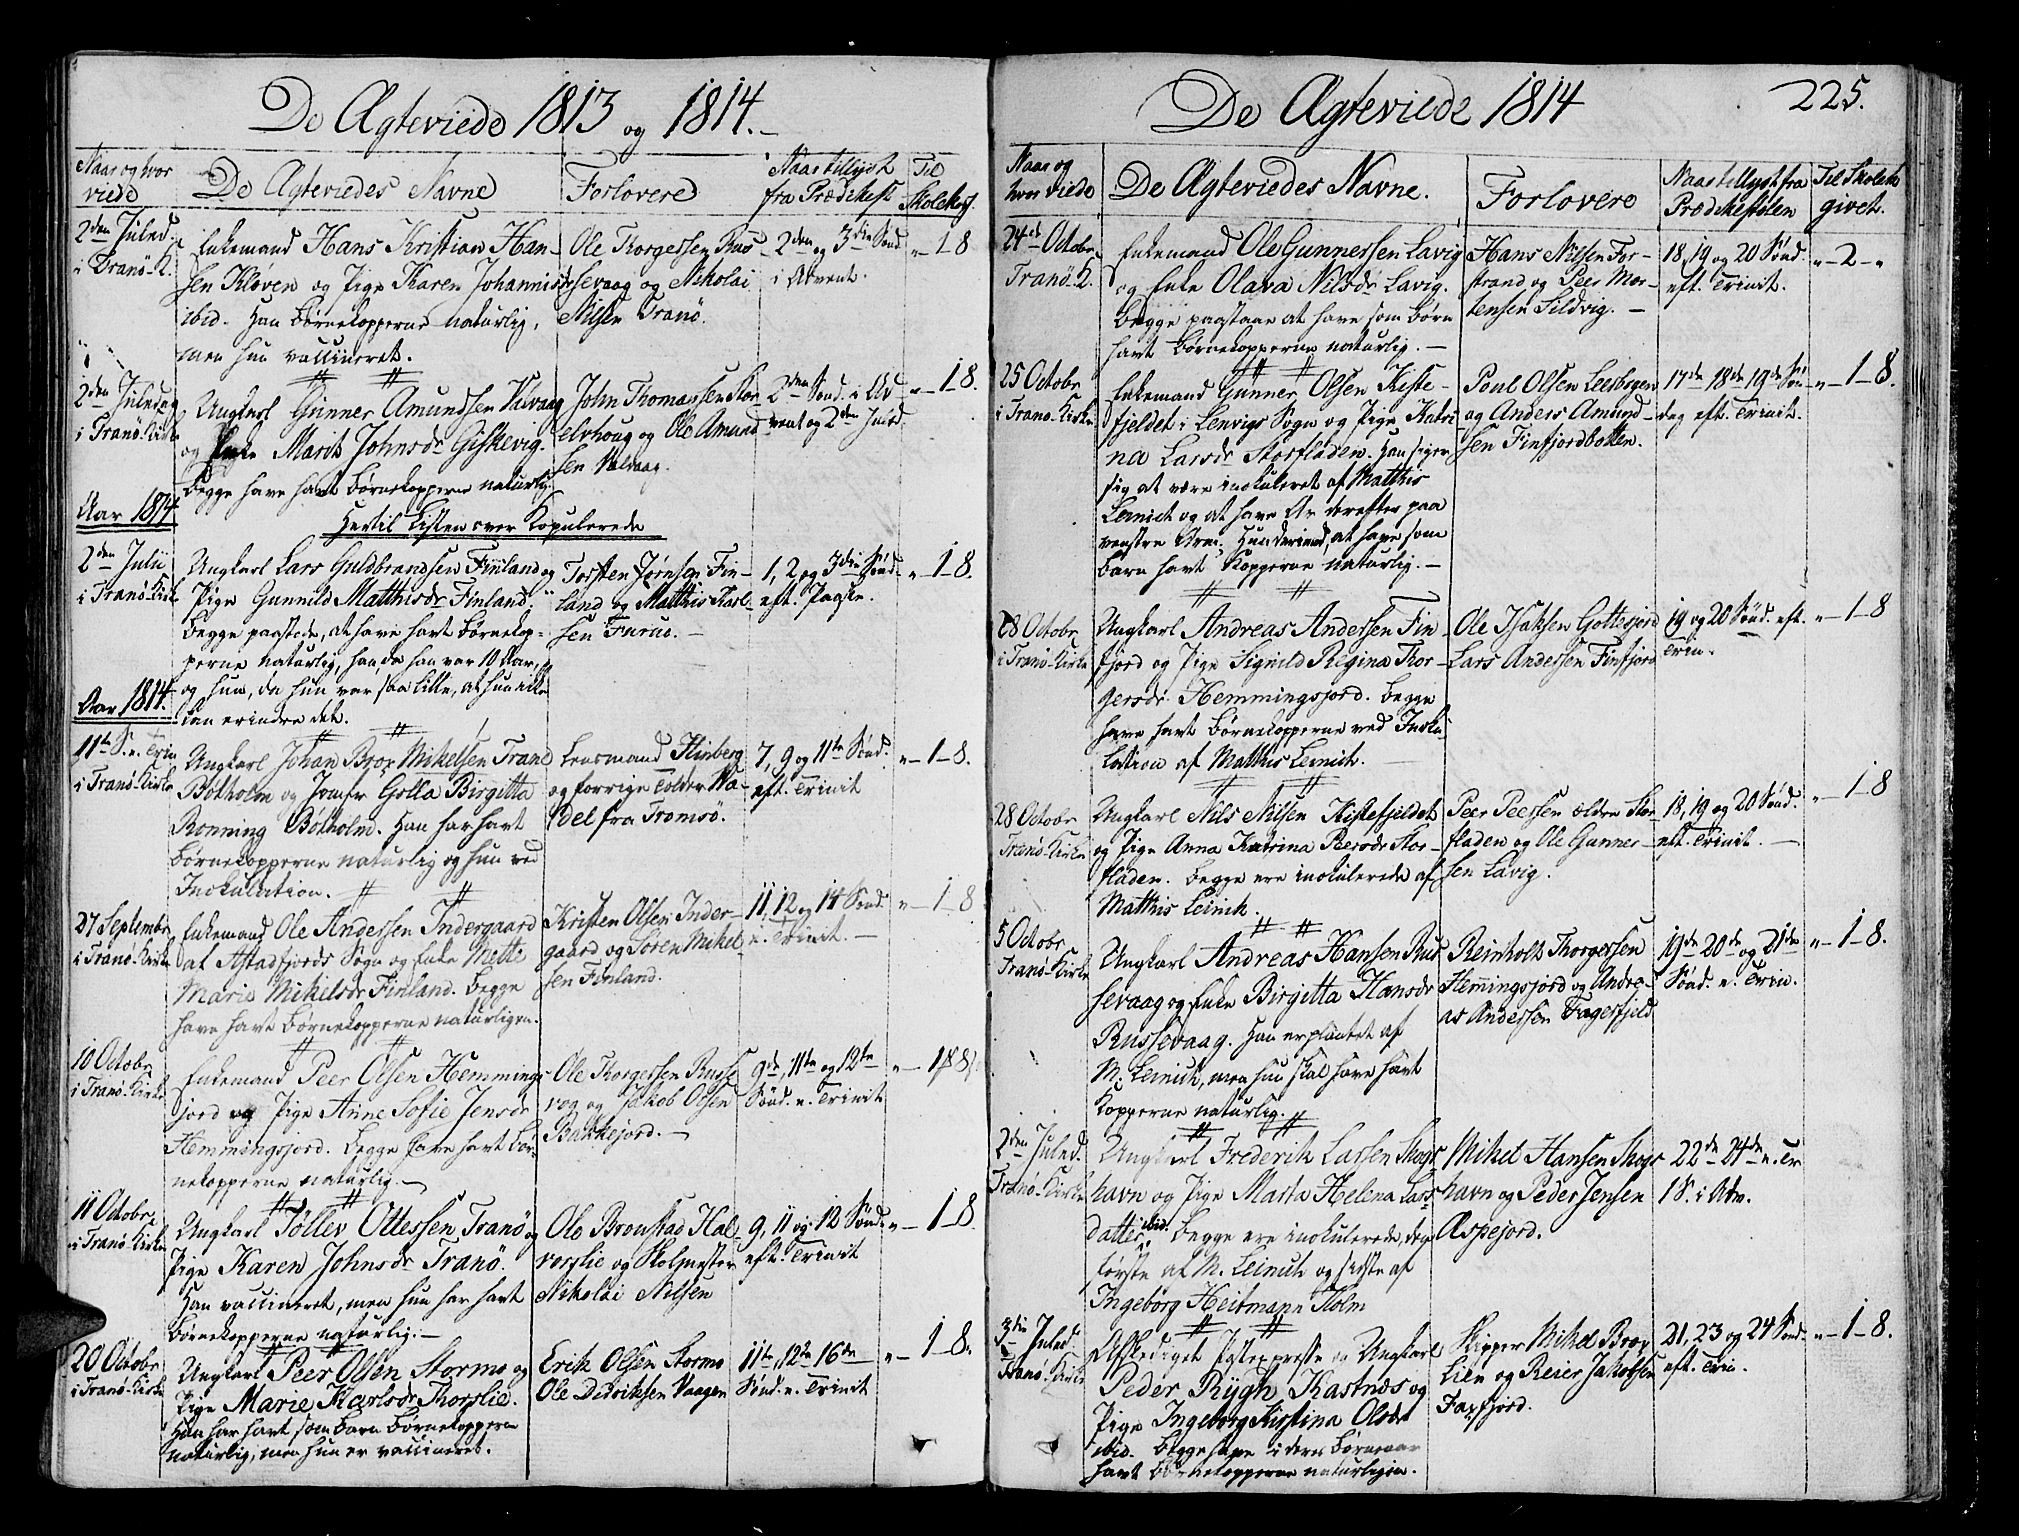 De Ægteviede 1813 og 1814.
Naar og hvor viede
De Ægteviedes Navne
Forlovere
Naar tillyst fra Prædikest.
Til Skolek.
2den Juled.
i Tranø-K.
Enkemand Hans Kristian Han-
sen Kløven og Pige Karen Johannisdr
ibid. Han Børnekopperne naturlig,
men hun vaccineret.
Ole Thorgersen Rus-
sevaag og Nikolai
Nilsen Tranø.
2den og 3die Sønd.
i Advent.
"-1 8
2den Juledag
i Tranø-Kirke
Ungkarl Gunner Amundsen Valvaag
og Enke Marit Johnsdr Giskevig.
Begge have havt Børnekopperne naturlig.
John Thomassen
og Ole Amund-
sen Valvaag.
2den Sønd. i Ad-
vent og 2den Juled.
"-1 8.
Aar 1814
Hertil Listen over Kopulerede
2den Julii
i Tranø-Kirke
Ungkarl Lars Guldbrandsen Finland og
Pige Gunnild Matthisdr Finland;
begge paastode, at have havt Børnekop-
perne naturlig, han, da han var 10 Aar,
og hun, da hun var saa lille, at hun ikke
kan erindre det.
Torsten Jørnsen Fin-
land og Matthis Karl-
sen Furue.
1, 2 og 3die Sønd.
eft. Paaske.
"-1-8.
Aar 1814.
11te S. e. Trin
i Tranø-Kirke
Ungkarl Johan Brox Mikelsen Tranø
Botholm og Jomfr Golla Birgitta
Rønning Botholm. Han har havt
Børnekopperne naturlig og hun ved
Inokulation.
Lensmand Hinberg
og forrige Tolder Wa-
del fra Tromsø.
7, 9 og 11te Sønd.
eft. Trinit
"-1-8.
27 Septembr
i Tranø-Kirke
Enkemand Ole Andersen Indergaard
af Astadfjords Sogn og Enke Mette
Marie Mikelsdr Finland. Begge
have havt Børnekopperne naturligen.
Kristen Olsen Inder-
gaard og Søren Mikel-
sen Finland.
11, 12 og 14 Sønd.
e. Trinit.
"-1-8
10 Octobr
i Tranø-Kirke
Enkemand Peer Olsen Hemmings-
jord og Pige Anne Sofie Jensdr
Hemmingsjord. Begge have havt Bør-
nekopperne naturlig.
Ole Thorgersen Russe-
vog og Jakob Olsen
Bakkejord.
9de, 11te og 12te
Sønd. e. Trinit
"-1-8
11 Octobr
i Tranø-Kirke
Ungkarl Tollev Ottessen Tranø og
Pige Karen Johnsdr Tranø.
Han vaccineret, men hun har havt
Børnekopperne naturlig.
Ole Bronstad Hal-
vorslie og Skolmester
Nikolai Nilsen
9, 11 og 12 Sønd.
eft. Trinit
"-1-8
20 Octobr
i Tranø-Kirke
Ungkarl Peer Olsen Stormo og
Pige Marie Karlsdr Thorslie.
Han har havt, som Barn Børnekopperne
naturlig, men hun er vaccineret.
Erik Olsen Stormo
Ole Didriksen Vaagen
11te, 12te 16de
Sønd. e. Trinit
"-1-8.
De Ægteviede 1814
225.
Naar og
hvor viede
De Ægteviedes Navne.
Forlovere
Naar tillyst fra
Prædikestolen
Til Skolek.
givet.
24de Octobr
Tranø-K.
Enkemand Ole Gunnersen Lavig
og Enke Olava Nilsdr Lavig.
Begge paastaae at have som Børn
havt Børnekopperne naturlig.
Hans Nilsen For-
strand og Peer Mor-
tensen Sildvig.
18, 19 og 20 Sønd.
eft. Trinit.
"-2-"
25 Octobr
i Tranø-Kirke
Enkemand Gunner Olsen Kiste-
fjeldet i Lenvigs Sogn og Pige Katri-
na Larsdr Storfladen. Han siger
sig at være inokuleret af Matthis
Leinich og at have Ar derefter paa
venstre Arm; at have som
Barn havt Kopperne naturlig.
Poul Olsen
og Anders Amund-
sen Finfjordbotten.
17de 18de 19de Søn-
dag eft. Trinit.
"-1-8.
28 Octobr
i Tranø-Kirke
Ungkarl Andreas Andersen Fin-
fjord og Pige Signild Regina Thor-
gersdr Hemmingsjord. Begge
have havt Børnekopperne ved Inoku-
lation af Matthis Leinich.
Ole Isaksen Gottesjord
Lars Andersen Finfjord
19 og 20 Sønd. eft.
Trin.
"-1-8
28 Octobr
Tranø-Kirke
Ungkarl Nils Nilsen Kistefjeldet
og Pige Anna Katrina Peersdr Stor-
fladen. Begge ere inokulerede af
Matthis Leinich.
Peer Peersen ældre Stor-
fladen og Ole Gunner-
sen Lavig.
18, 19 og 20 Sønd.
eft. Trinit.
"-1 8
5 Octobr
Tranø-Kirke
Ungkarl Andreas Hansen Rus-
sevaag og Enke Birgitta Hansdr
Russevaag. Han er plantet af
M. Leinich, men hun skal have havt
Kopperne naturlig.
Reinholt Thorgersen
Hemingsjord og Andre-
as Andersen Fagerfjeld
19de 20de og 21de
Sønd. e. Trin.
"-1-8.
2den Juled.
Tranø-Kirke
Ungkarl Frederik Larsen Skogs-
havn og Pige Marta Helena Lars-
datter ibid. Begge ere inokulerede, den
første af M. Leinich og sidste af
Ingeborg Heitmann Holm
Mikel Hansen Skogs-
havn og Peder Jensen
Æspejord.
22de 24de e. Tr
1 S. i Adv.
3die Juled.
Tranø-Kirke
Afskediget og Ungkarl
Peder Rÿgh Kastnæs og
Pige Ingeborg Kistina Olsdr
ibid. Begge have i deres Børneaar
havt Børnekopperne naturligen.
Skipper Mikel Brox
Lien og Reier Jakobsen
Faxfjord.
21, 23 og 24 Sønd.
eft. Trin.
"-1-8.